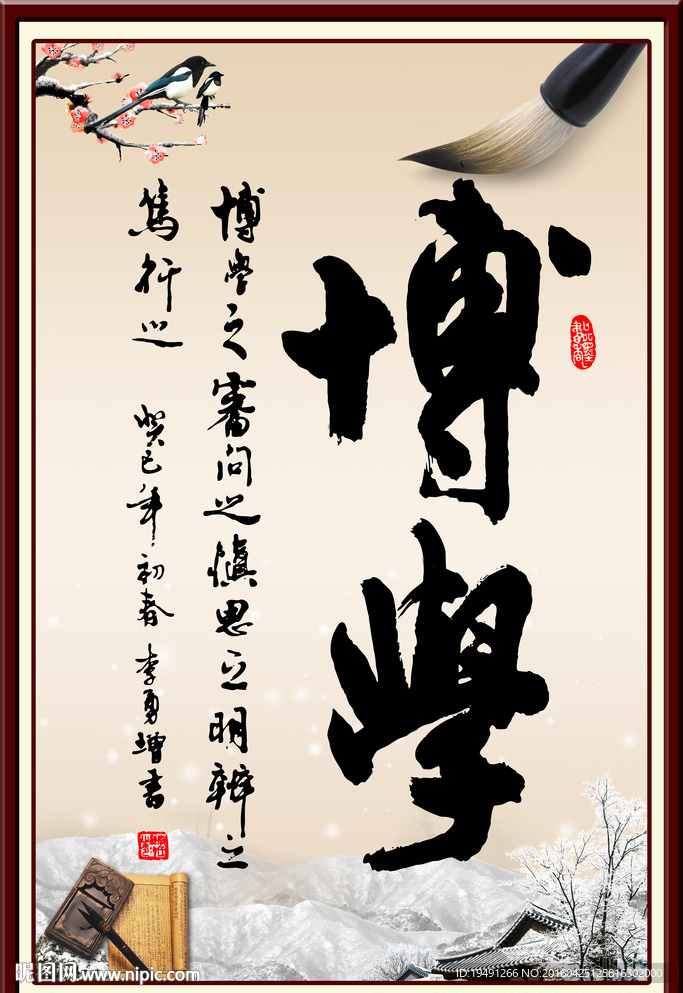 博學
博學之審問之慎思之明辨之
篤行之
癸巳年初春 李勇增書
昵图网 www.nipic.com
ID:19491266 NO:20160425125816302000